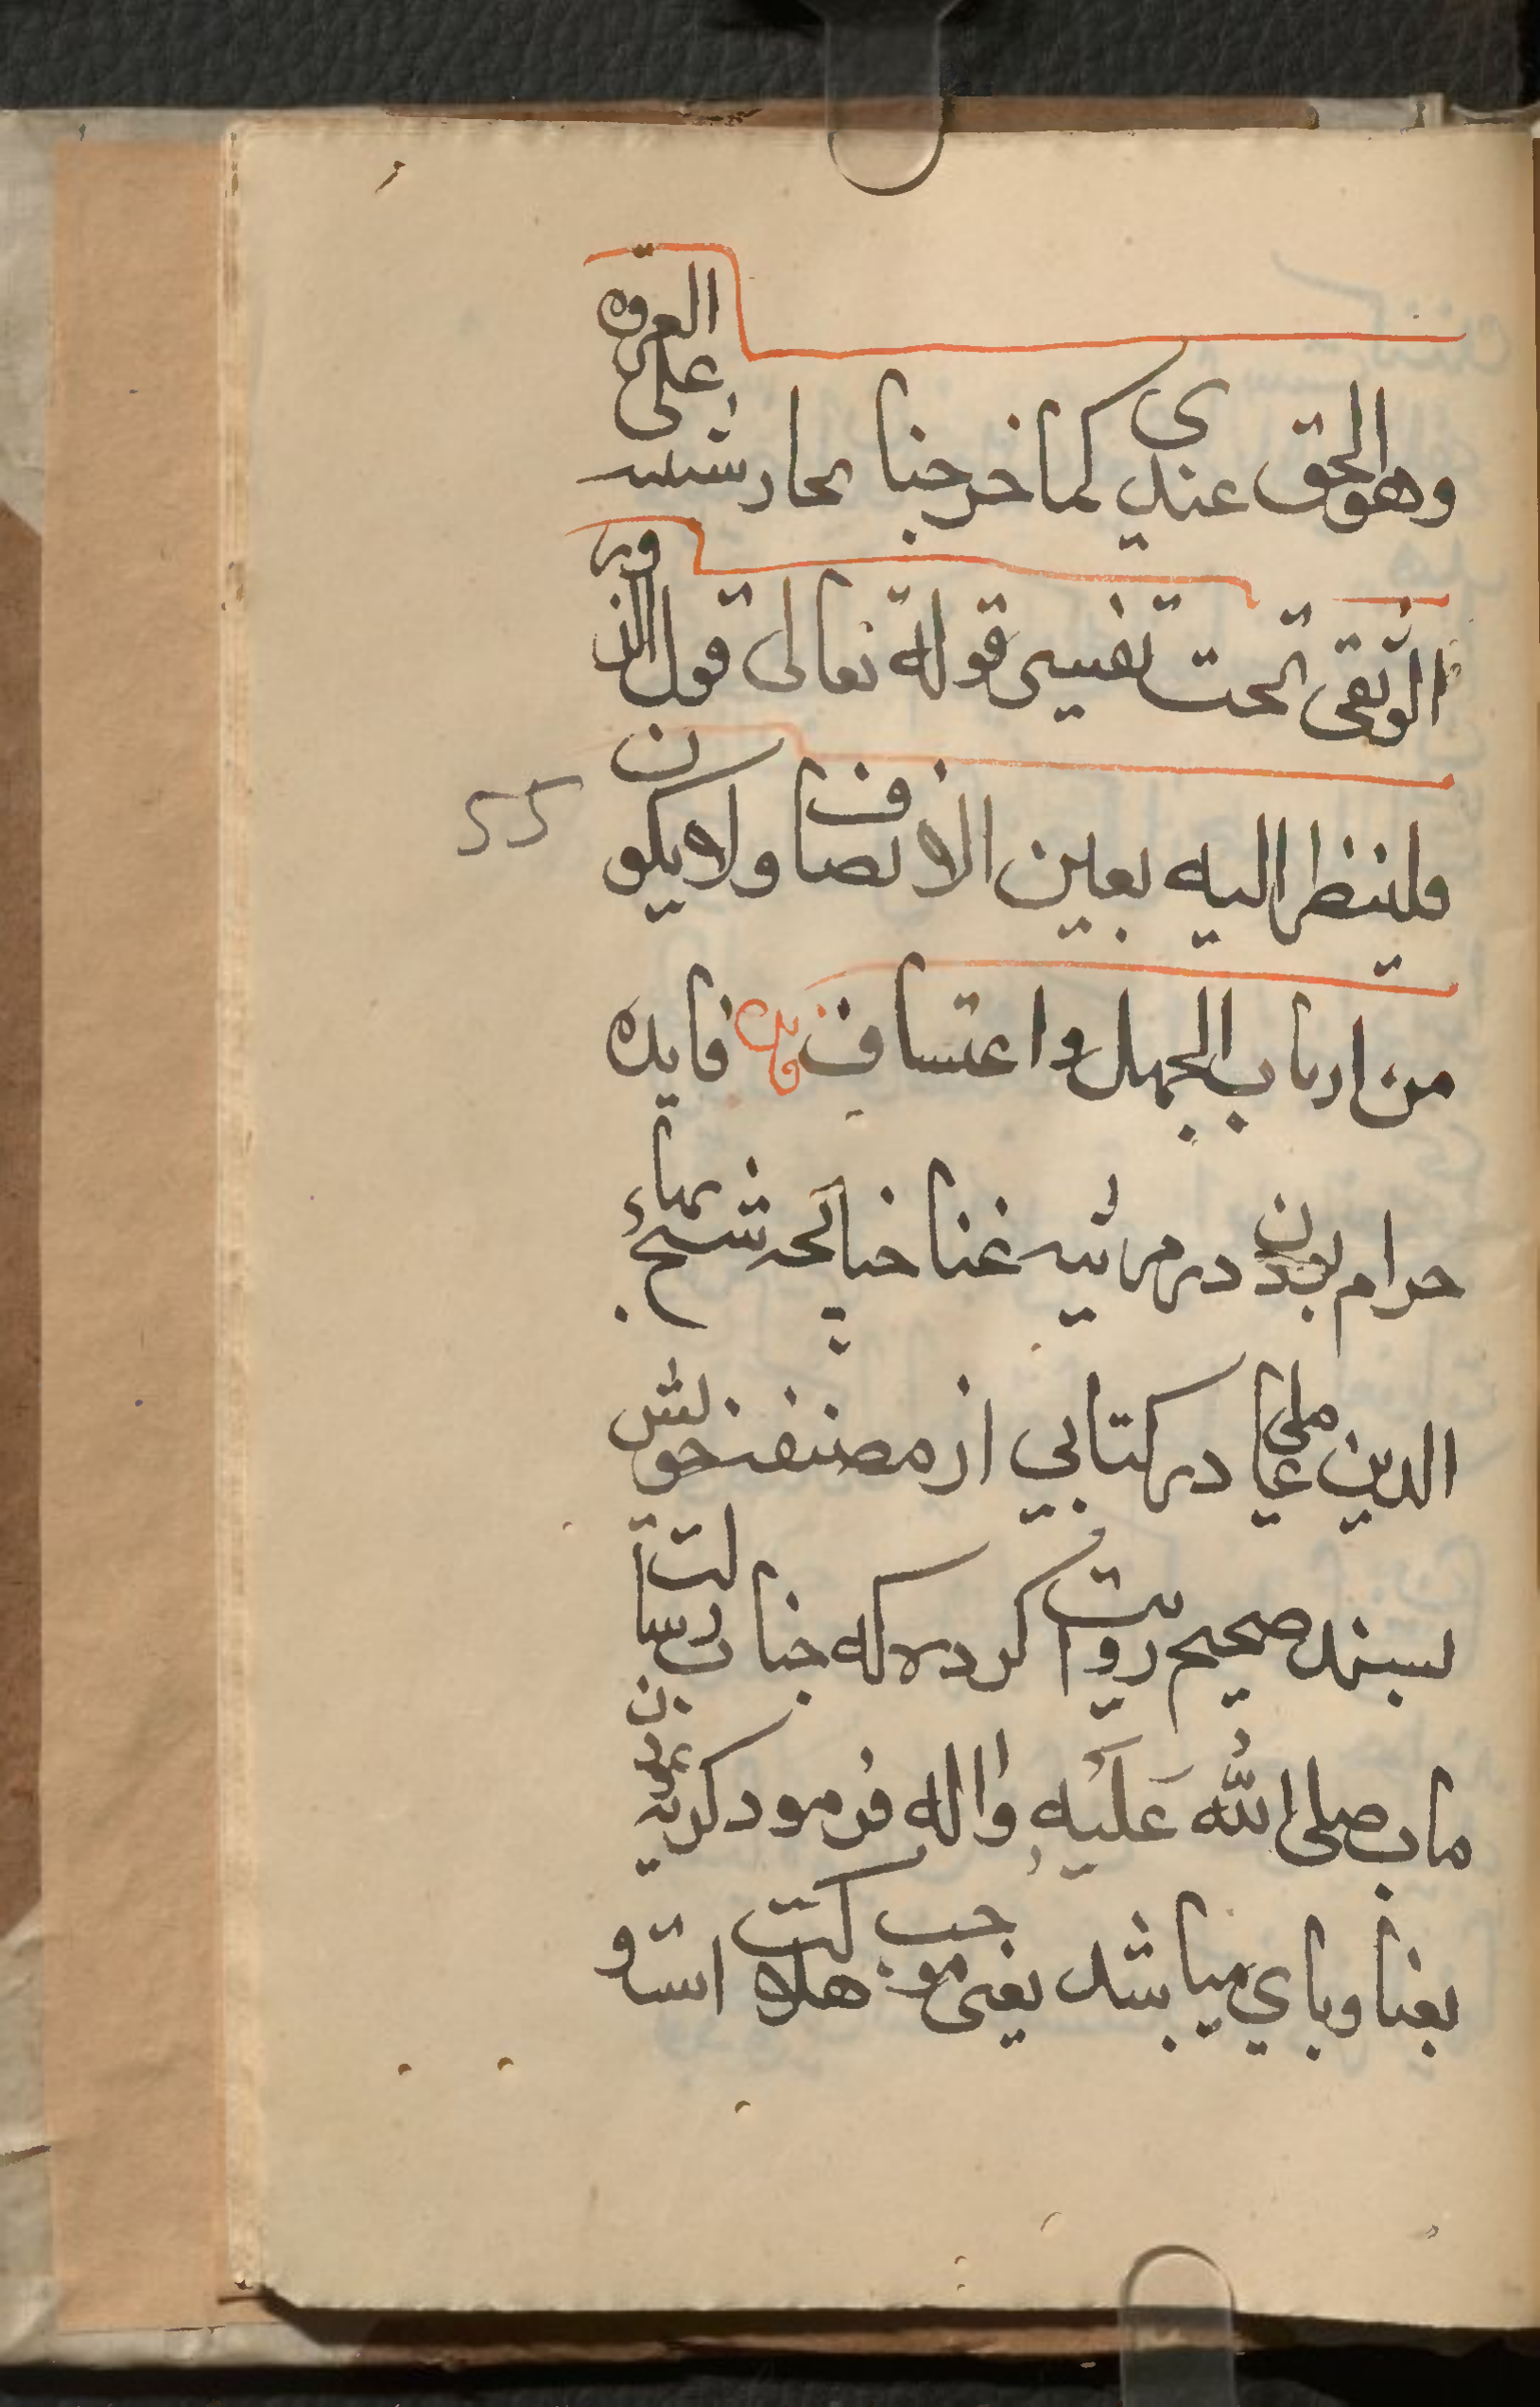 وهو الحق عندي كما خرجنا بحار شيد على العروة
الوثقى تحت تفسير قوله تعالى قول الزور
فلينظر اليه بعين الانصاف ولا يكون
55
من ارباب الجهل واعتساف فايده
حرام بودن در مرثيه غنا خيالحه شيخ بهاء
الدين عاملي در كتابي از مصنف خويش
بسند صحيح روايت كرده كه جناب رسالت
ماب صلى الله عليه واله فرمود كريه
بغنا وباي ميباشد يعني موجب هلاكت است و